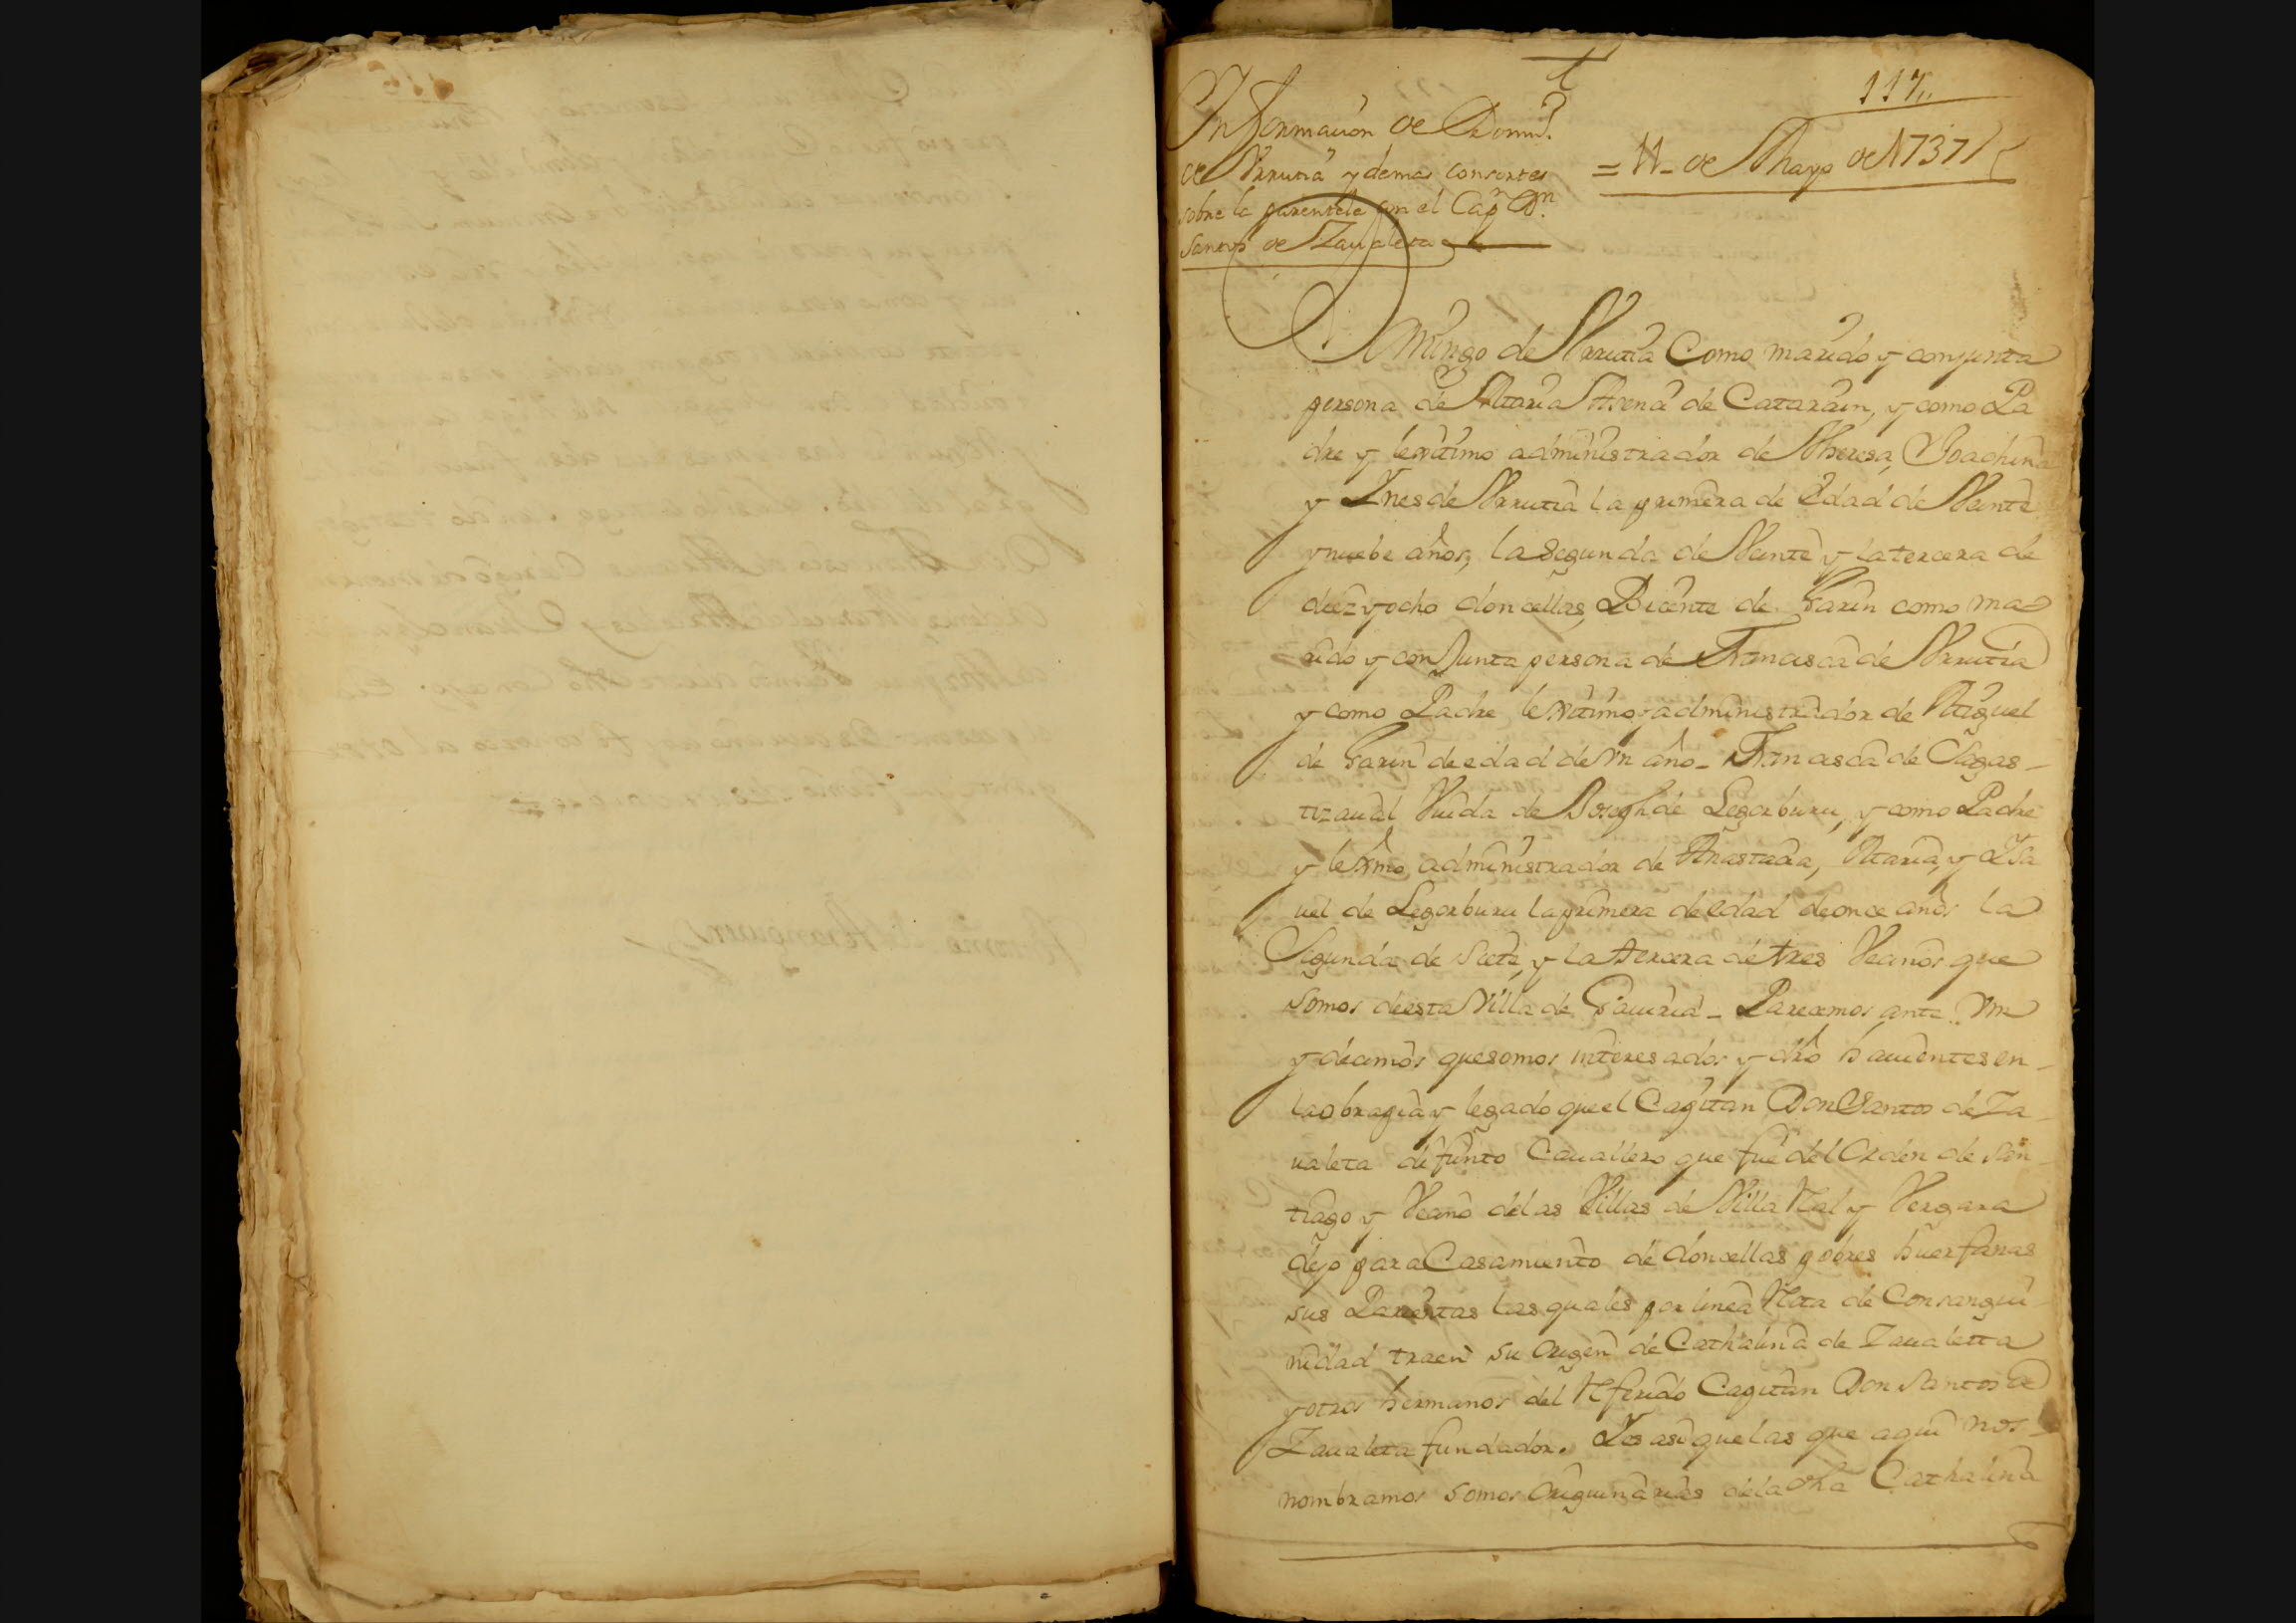 117
Informacion de Doming.
de Vrrutia y demas consortes
sobre la parentela con el Capn Dn
Santos de Zaualeta
= 11 de Mayo de 1737
Domingo de Vrrutia Como marido y conjunta
persona de Maria Athena de Catarain, y como Pa
dre y lexitimo administrador de Theresa, Joachina
y Ynes de Vrrutia la primera de Edad de Veinte
y nuebe años, la segunda de Veinte y la tercera de
diez y ocho doncellas, Bicente de Garin como ma
rido y conjunta persona de Francisca de Vrrutia
y como Padre lexitimo administrador de Miguel
de Garin de edad de vn año - Francisca de Sagas-
tizaual Viuda de Joseph de Legorburu, y como Padre
y lexmo administrador de Anastacia, Maria, y Ysa
uel de Legorburu la primera de edad de once años la
Segunda de Siete, y la tercera de tres Vecinos que
somos de esta Villa de Gauiria - Parecemos ante Vm
y decimos que somos interesados y dro hauientes en
la obra pia y legado que el Capitan Don Santos de Za
ualeta difunto Cauallero que fue del Orden de San
tiago y Vecino de las Villas de Villa Real y Vergara
dejo para Casamiento de doncellas pobres huerfanas
sus Parientas las quales por linea Reta de Consangui
nidad traen su origen de Cathalina de Zaualetta
y otros hermanos del Referido Capitan Don Santos de
Zaualeta fundador. Y es asi que las que aqui nos
nombramos somos origuinarias de la dha Cathalina